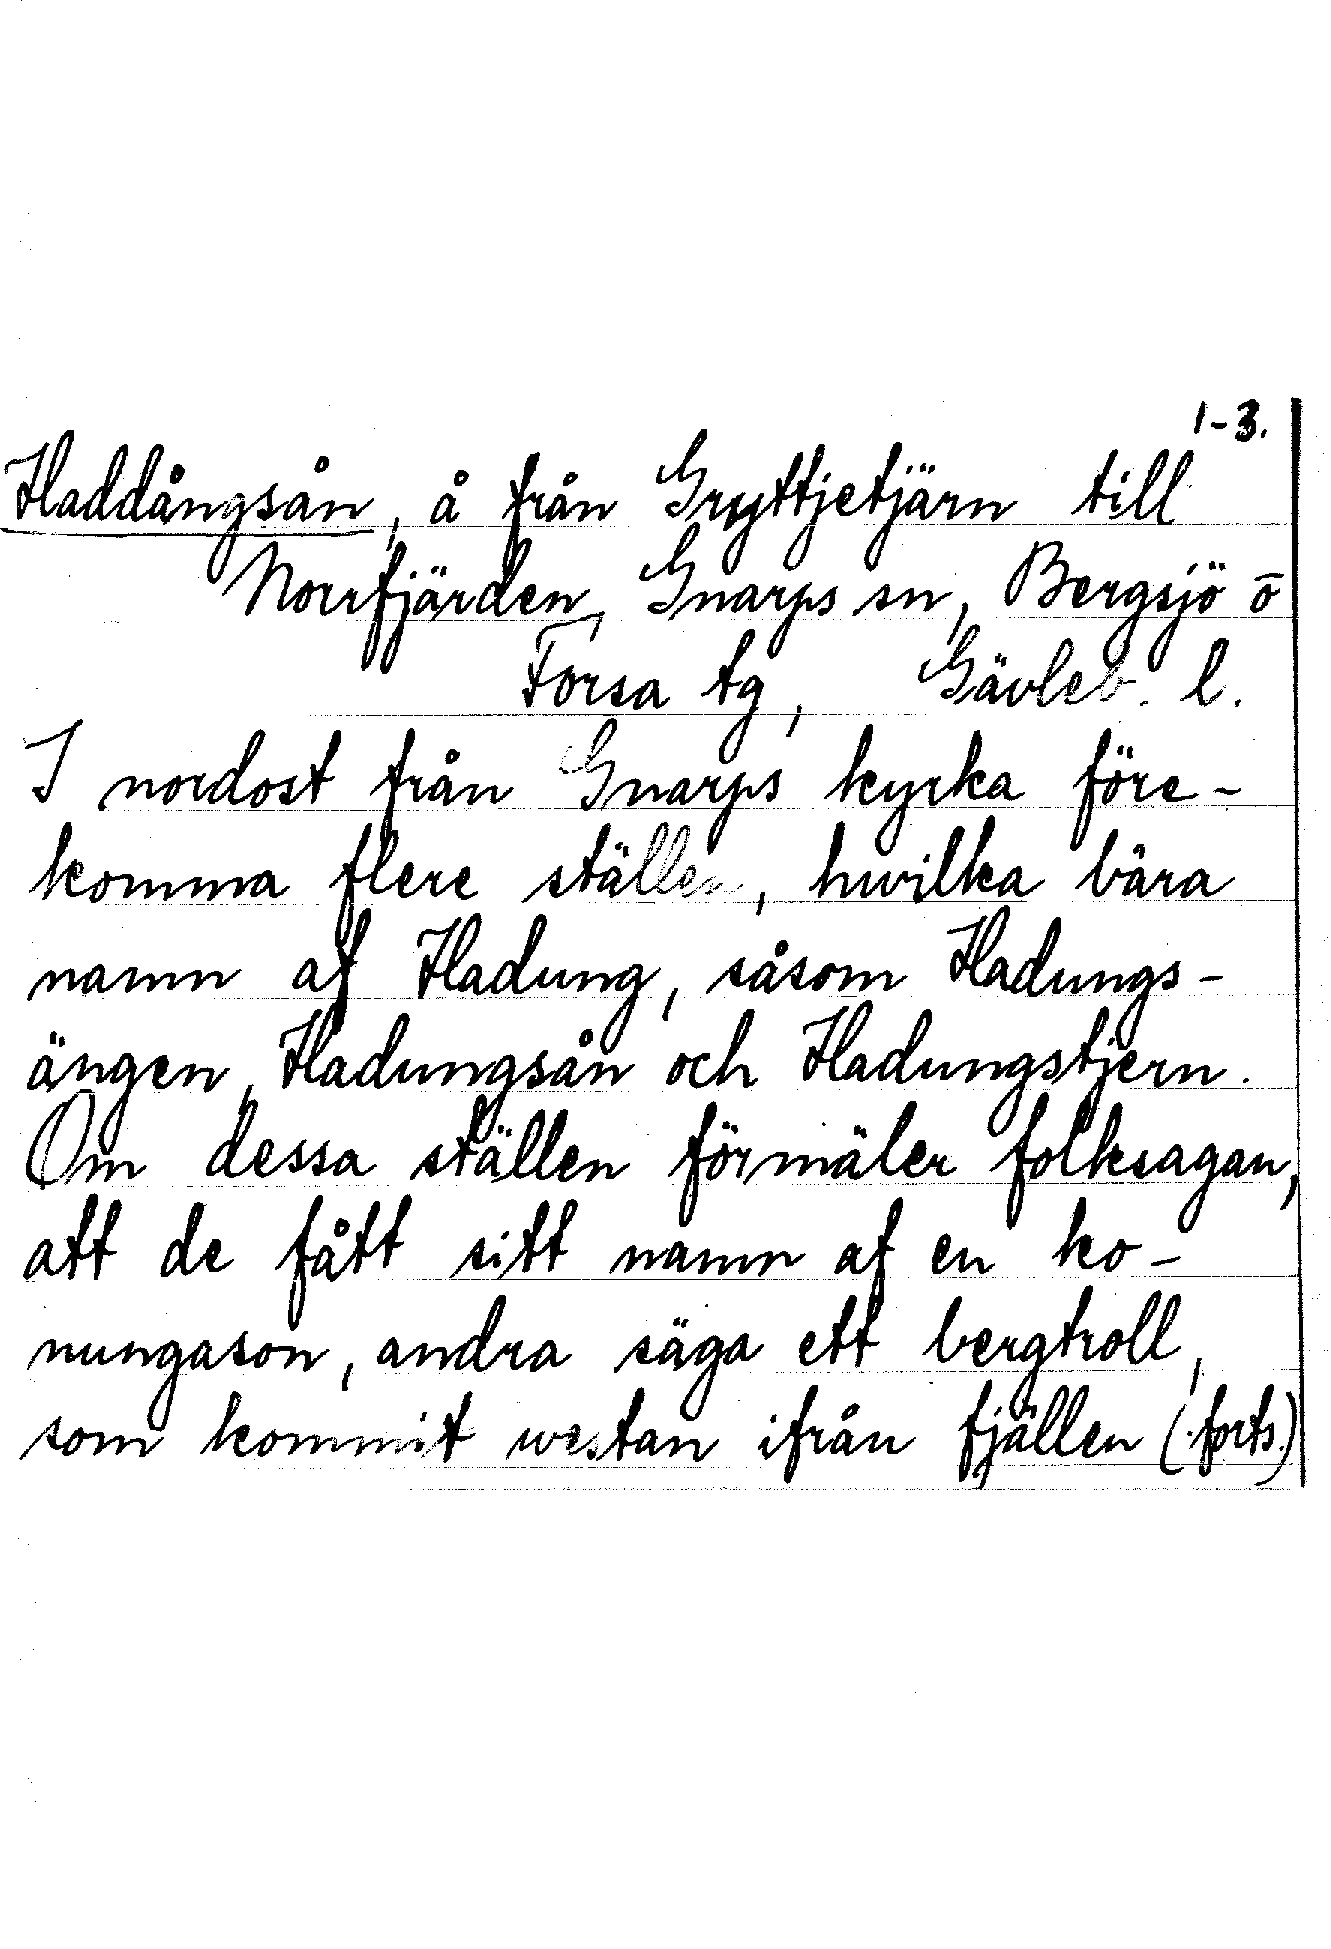 1-3.
Haddångsån, å från Gryttjetjärn till
Norrfjärden, Gnarps sn, Bergsjö o
Forsa tg, Gävleb. l.
I nordost från Gnarps kyrka före-
komma flere ställen, hwilka bära
namn af Hadung, såsom Hadungs-
ängen, Hadungsån och Hadungstjern.
Om dessa ställen förmäler folksagan,
att de fått sitt namn af en ko-
nungason, andra säga ett bergtroll,
som kommit westan ifrån fjällen (forts.)